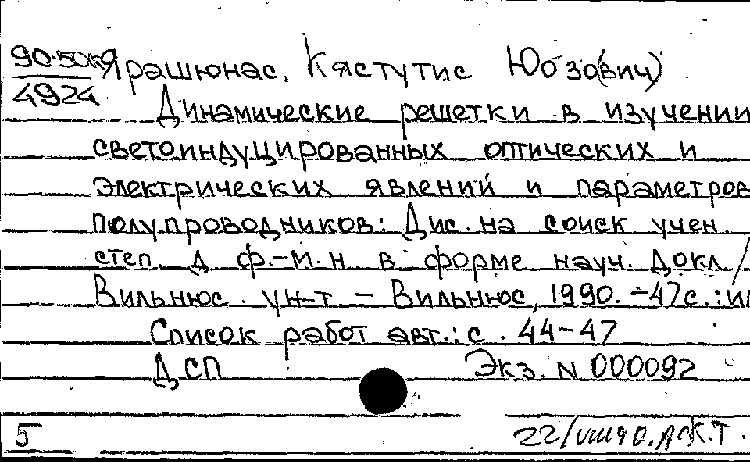 90-50к
4924
Ярашюнас, Кястутис Юозо(вич)
Динамические решетки в изучении
светоиндуцированных оптических и
электрических явлений и параметров
полупроводников: Дис. на соиск учен.
степ. д ф.-м.н в форме науч. докл/
Вильнюс. ун-т - Вильнюс, 1990. -47с.: ил
Список работ авт.: с. 44-47
ДСП Экз. N 000092
5